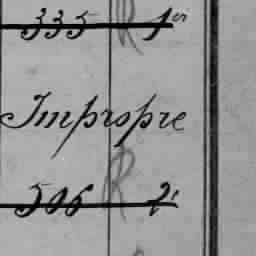 335 R 1er
Impropre
506 R 2'